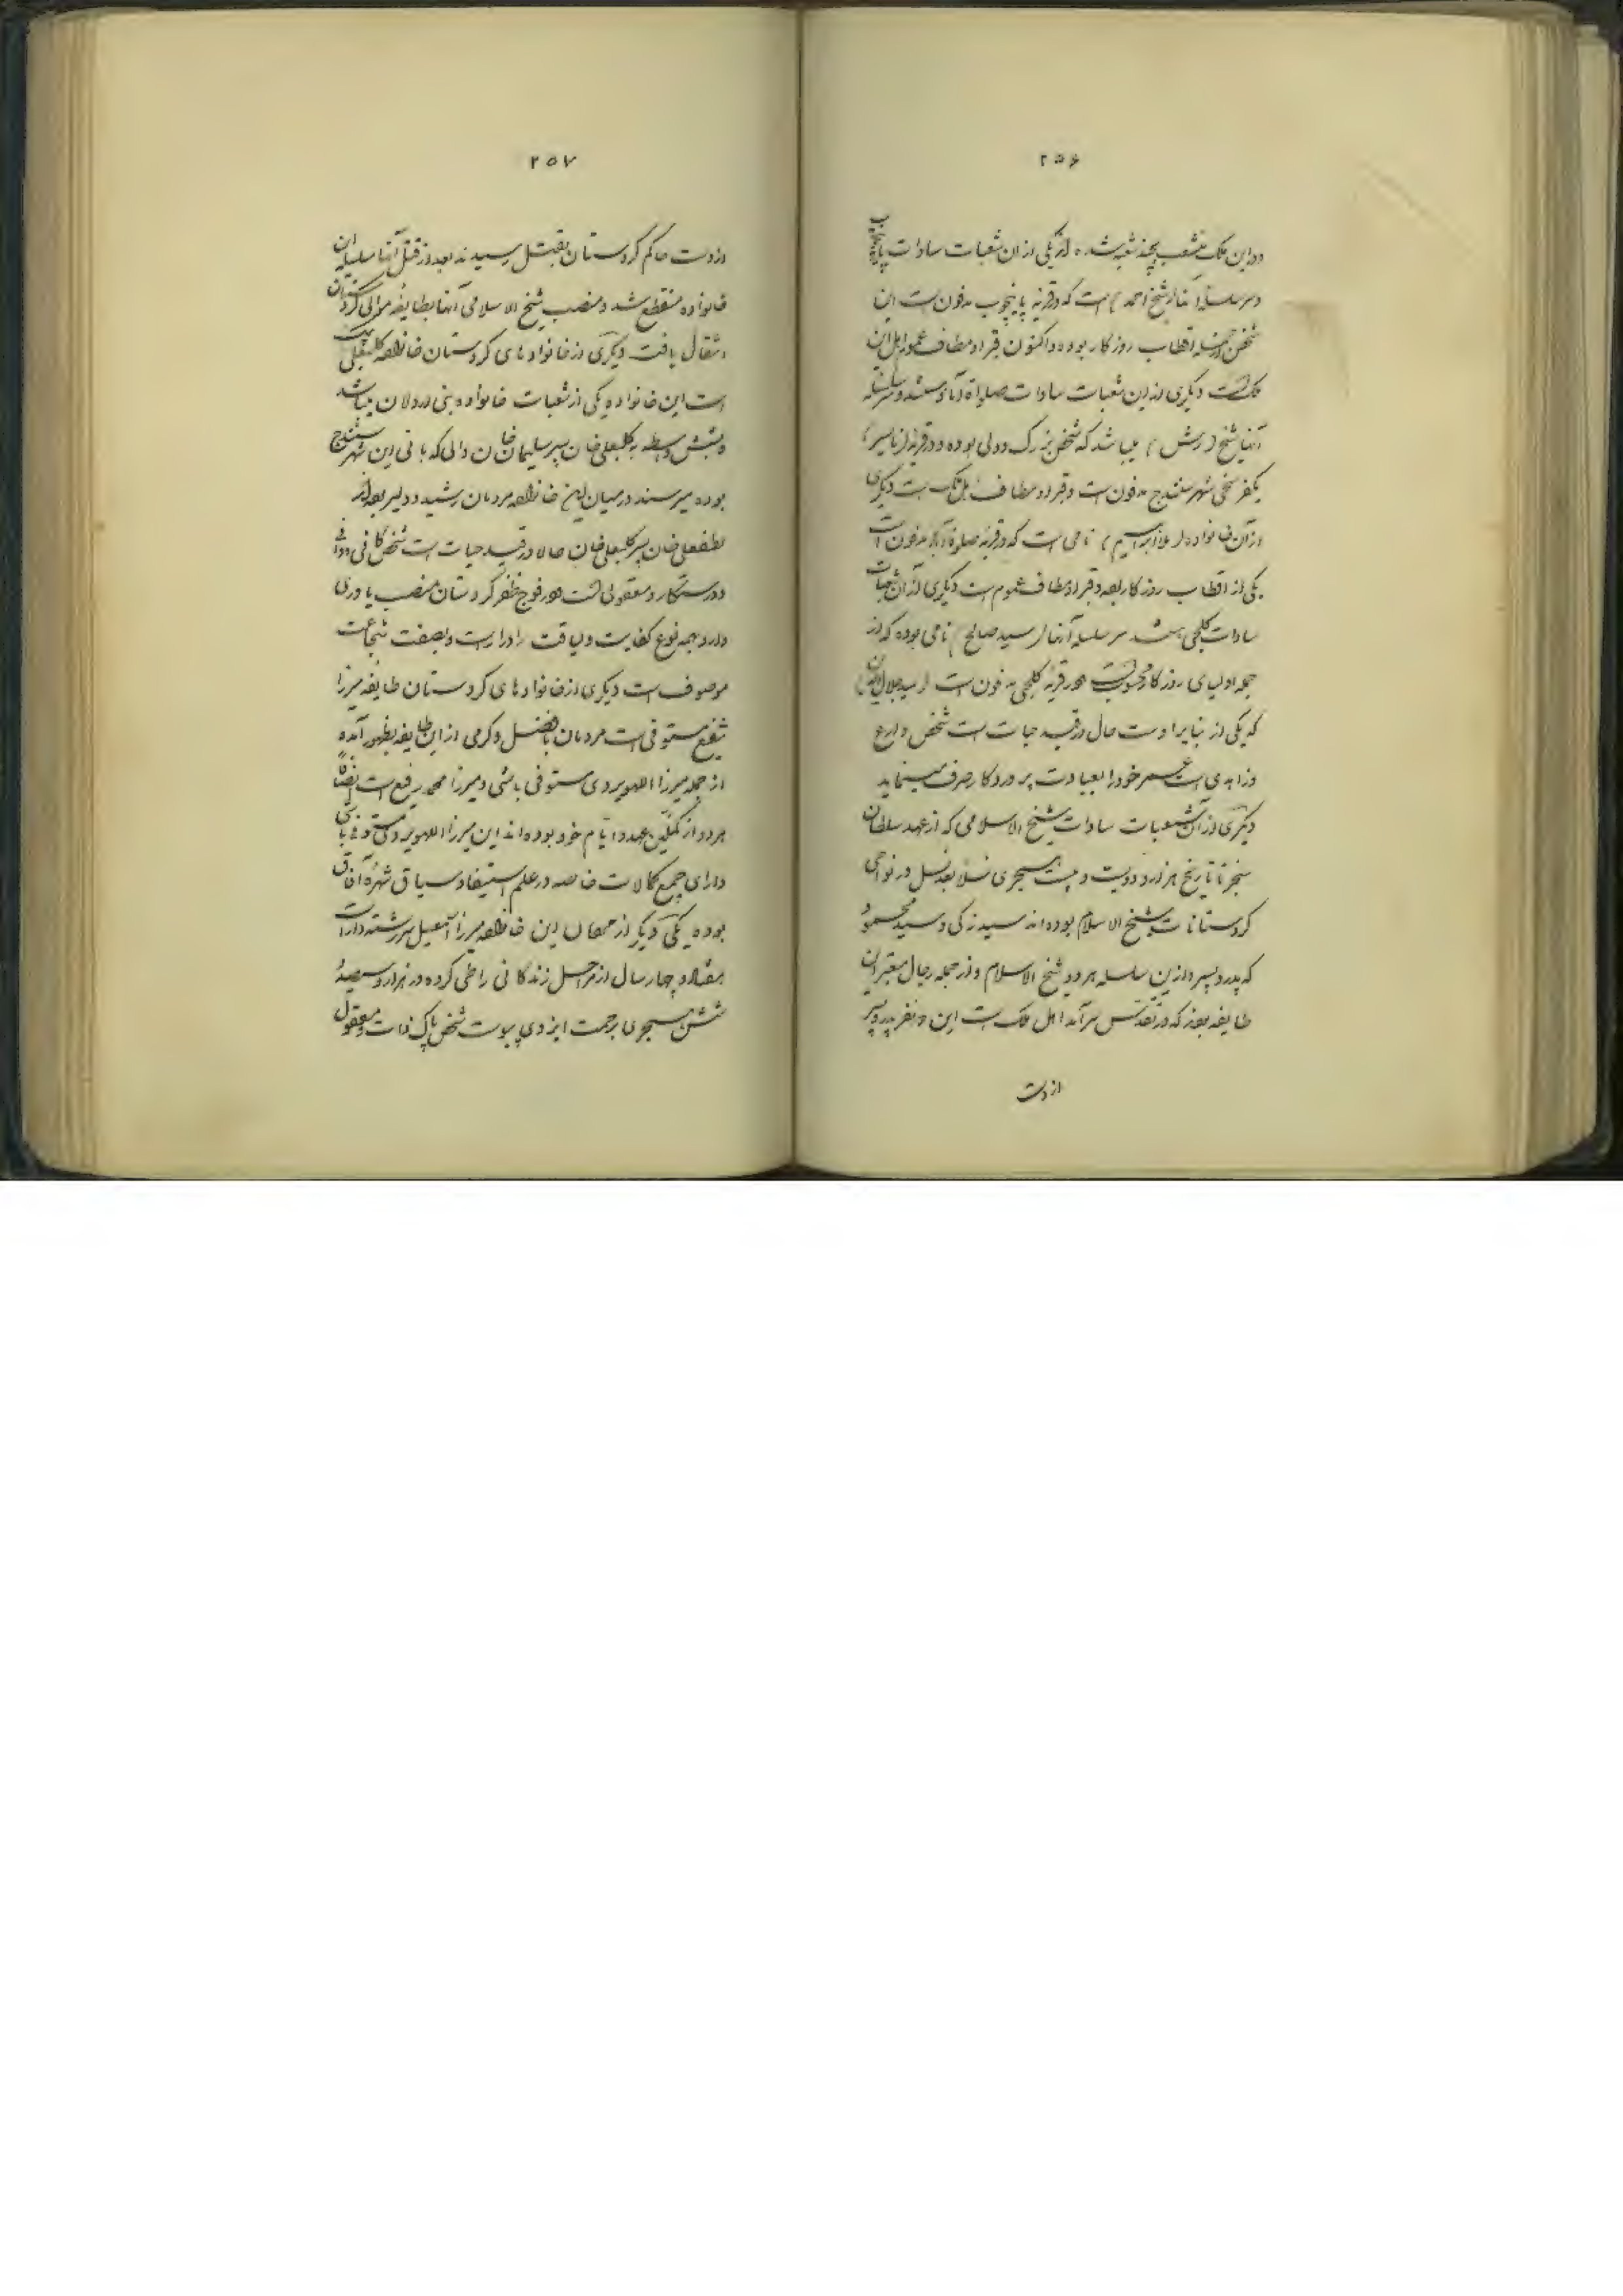 ۲۵۶
در این ملک منشعب بچند شعبه شده اند یکی از ان شعبات سادات پاینچوب
و سر سلسله آنها (شیخ احمد) است که در قریه پاینچوب مدفون است این
شخص از جمله اقطاب روزگار بوده و اکنون قبر او مطاف عموم اهل این
ملک است دیگری از این شعبات سادات صلوات آباد هستند و سر سلسله
آنها شیخ (رش) میباشد که شخص بزرگ و ولی بوده و در قریه (نایسر)
یکفرسخی شهر سنندج مدفون است و قبر او مطاف اهل ملک است دیگری
از آن خانواده (ملا ابراسیم) نامی است که در قریه صلوة آباد مدفون است
یکی از اقطاب روزگار بوده و قبر او مطاف عموم است دیگری از آن شعبات
سادات کلجی هستند سر سلسله آنها (سید صالح) نامی بوده که از
جمله اولیای روزگار محسوب است و در قریه کلجی مدفون است (سید جلال الدین)
که یکی از نبایر اوست حال در قید حیات است شخص وارع
و زاهدی است عمر خود را بعبادت پروردگار صرف مینماید
دیگری از آن شعبات سادات شیخ الاسلامی که از عهد سلطان
سنجر تا تاریخ هزار و دویست و بیست هجری نسلا بعد نسل در نواحی
کردستانات شیخ الاسلام بوده اند سید زکی و سید محمود
که پدر و پسر و ازین سلسله هر دو شیخ الاسلام و از جمله رجال معتبر این
طایفه بوده که در تقدس سر آمد اهل ملک است این دو نفر پدر و پسر
از دست
۲۵۷
از دست حاکم کردستان بقتل رسیدند بعد از قتل آنها سلسله این
خانواده منقطع شد و منصب شیخ الاسلامی آنها بطایفه موالی کردستان
انتقال یافت دیگری از خانواده های کردستان خانواده کلبعلی بیک
است این خانواده یکی از شعبات خانواده بنی اردلان میباشد
و بشش واسطه به کلبعلی خان پسر سلیمان خان والی که بانی این شهر سنندج
بوده میرسند در میان این خانواده مردمان رشید و دلیر بوده اند
لطفعلی خان پسر کلبعلی خان حالا در قید حیات است شخص کافی و وافی
و درستکار و معقولی است و در فوج ظفر کردستان منصب یاوری
دارد همه نوع کفایت و لیاقت را داراست و بصفت شجاعت
موصوف است دیگری از خانواده های کردستان طایفه میرزا
شفیع مستوفی است مردمان با فضل و کرمی از این طایفه بظهور آمده
از جمله میرزا اللهویردی مستوفی باشی و میرزا محمد رفیع است
هر دو از کملین عهد و ایام خود بوده اند این میرزا اللهویردی مستوفی باشی
دارای جمیع کمالات خاصه در علم استیفا و سیاق شهره آفاق
بوده یکی دیگر از رجال این خانواده میرزا اسمعیل سررشته دار است
هفتاد و چهار سال از مراحل زندگانی را طی کرده در هزار و سیصد و
شش هجری برحمت ایزدی پیوست شخص پاک ذات و معقول